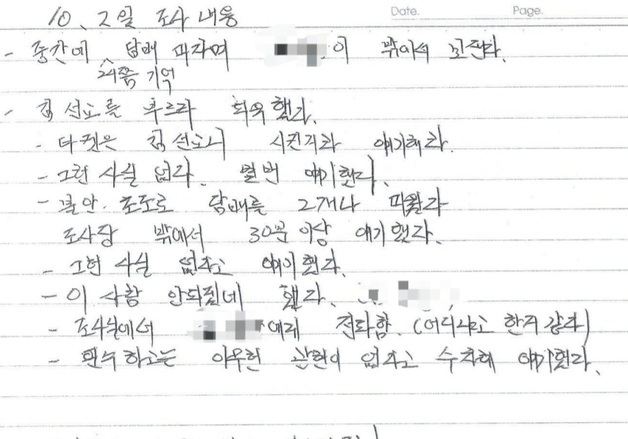 10. 2일 조사 내용
Date. Page.
- 중간에 담배 피자며 이 밖에서 꼬신다.
2시쯤 기억
- 김선교를 부르라 회유했다.
- 타켓은 김선교니 시킨거라 얘기해라.
- 그런 사실 없다. 몇번 얘기했다.
- 불안. 초조로 담배를 2개나 피웠다
조사장 밖에서 30분이상 얘기했다.
- 그런 사실 없다고 얘기했다.
- 이 사람 안되겠네 했다.
- 조사실에서 에게 전화함. (어디냐고 한거 같다)
- 하고는 아무런 관련이 없다고 수차례 얘기했다.